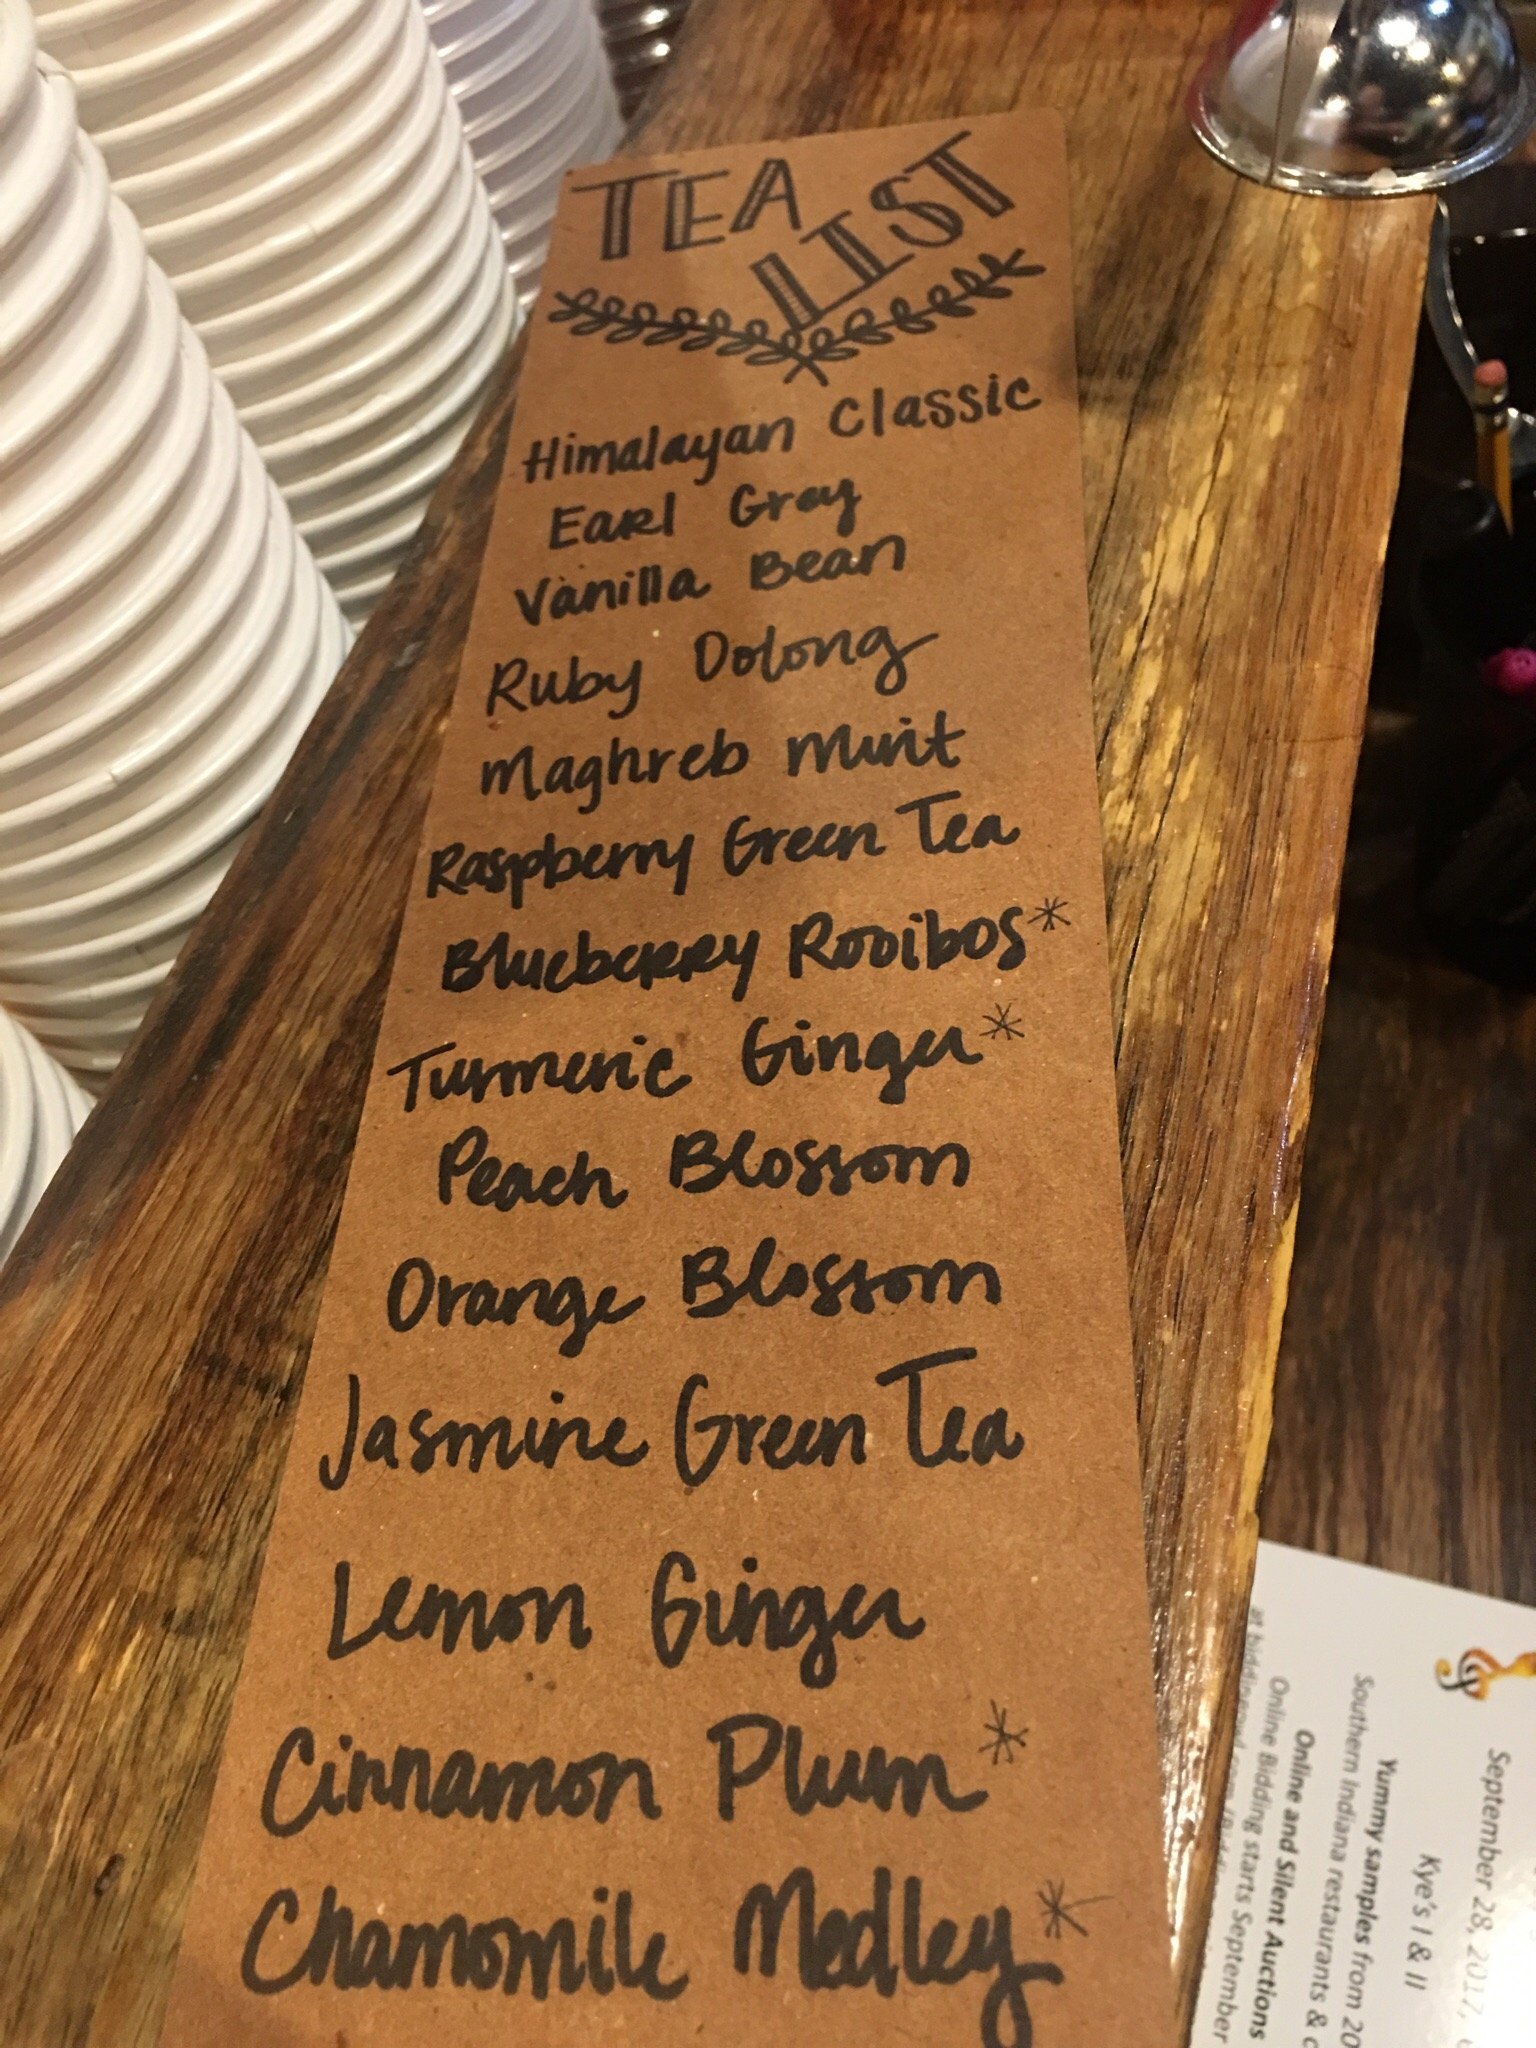 TEA
LIST
Himalayan Classic
Earl Grey
Vanilla Bean
Ruby Oolong
Maghreb Mint
Raspberry Green Tea
Blueberry Rooibos*
Turmeric Ginger*
Peach Blossom
Orange Blossom
Jasmine Green Tea
Lemon Ginger
Cinnamon Plum*
Chamomile Medley*
September 28, 2017,
Kye's I & II
Yummy samples from 20
Southern Indiana restaurants &
Online and Silent Auctions
Online Bidding starts September